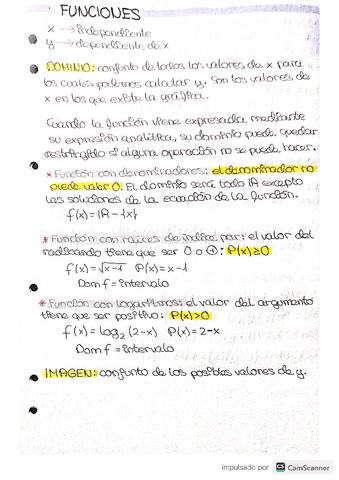 FUNCIONES
x → independiente
y → dependiente de x
DOMINIO: conjunto de todos los valores de x para
los cuales podemos calcular y. Son los valores de
x en los que existe la gráfica.
Cuando la función viene expresada mediante
su expresión analítica, su dominio puede quedar
restringido si alguna operación no se puede hacer.
* Función con denominadores: el denominador no
puede valer 0. El dominio será todo ℝ excepto
las soluciones de la ecuación de la función.
f(x) = ℝ - {x}
* Función con raíces de índice par: el valor del
radicando tiene que ser 0 o ⊕: P(x) ≥ 0
f(x) = √x-1 P(x) = x-1
Dom f = intervalo
* Función con logaritmos: el valor del argumento
tiene que ser positivo: P(x) > 0
f(x) = log₂ (2-x) P(x) = 2-x
Dom f = intervalo
IMAGEN: conjunto de los posibles valores de y.
impulsado por CS CamScanner